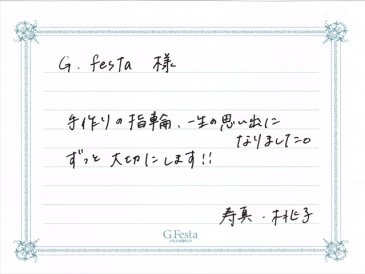 G. festa 様
手作りの指輪、一生の思い出に
なりました。
ずっと 大切にします!!
寿真・桃子
G.Festa